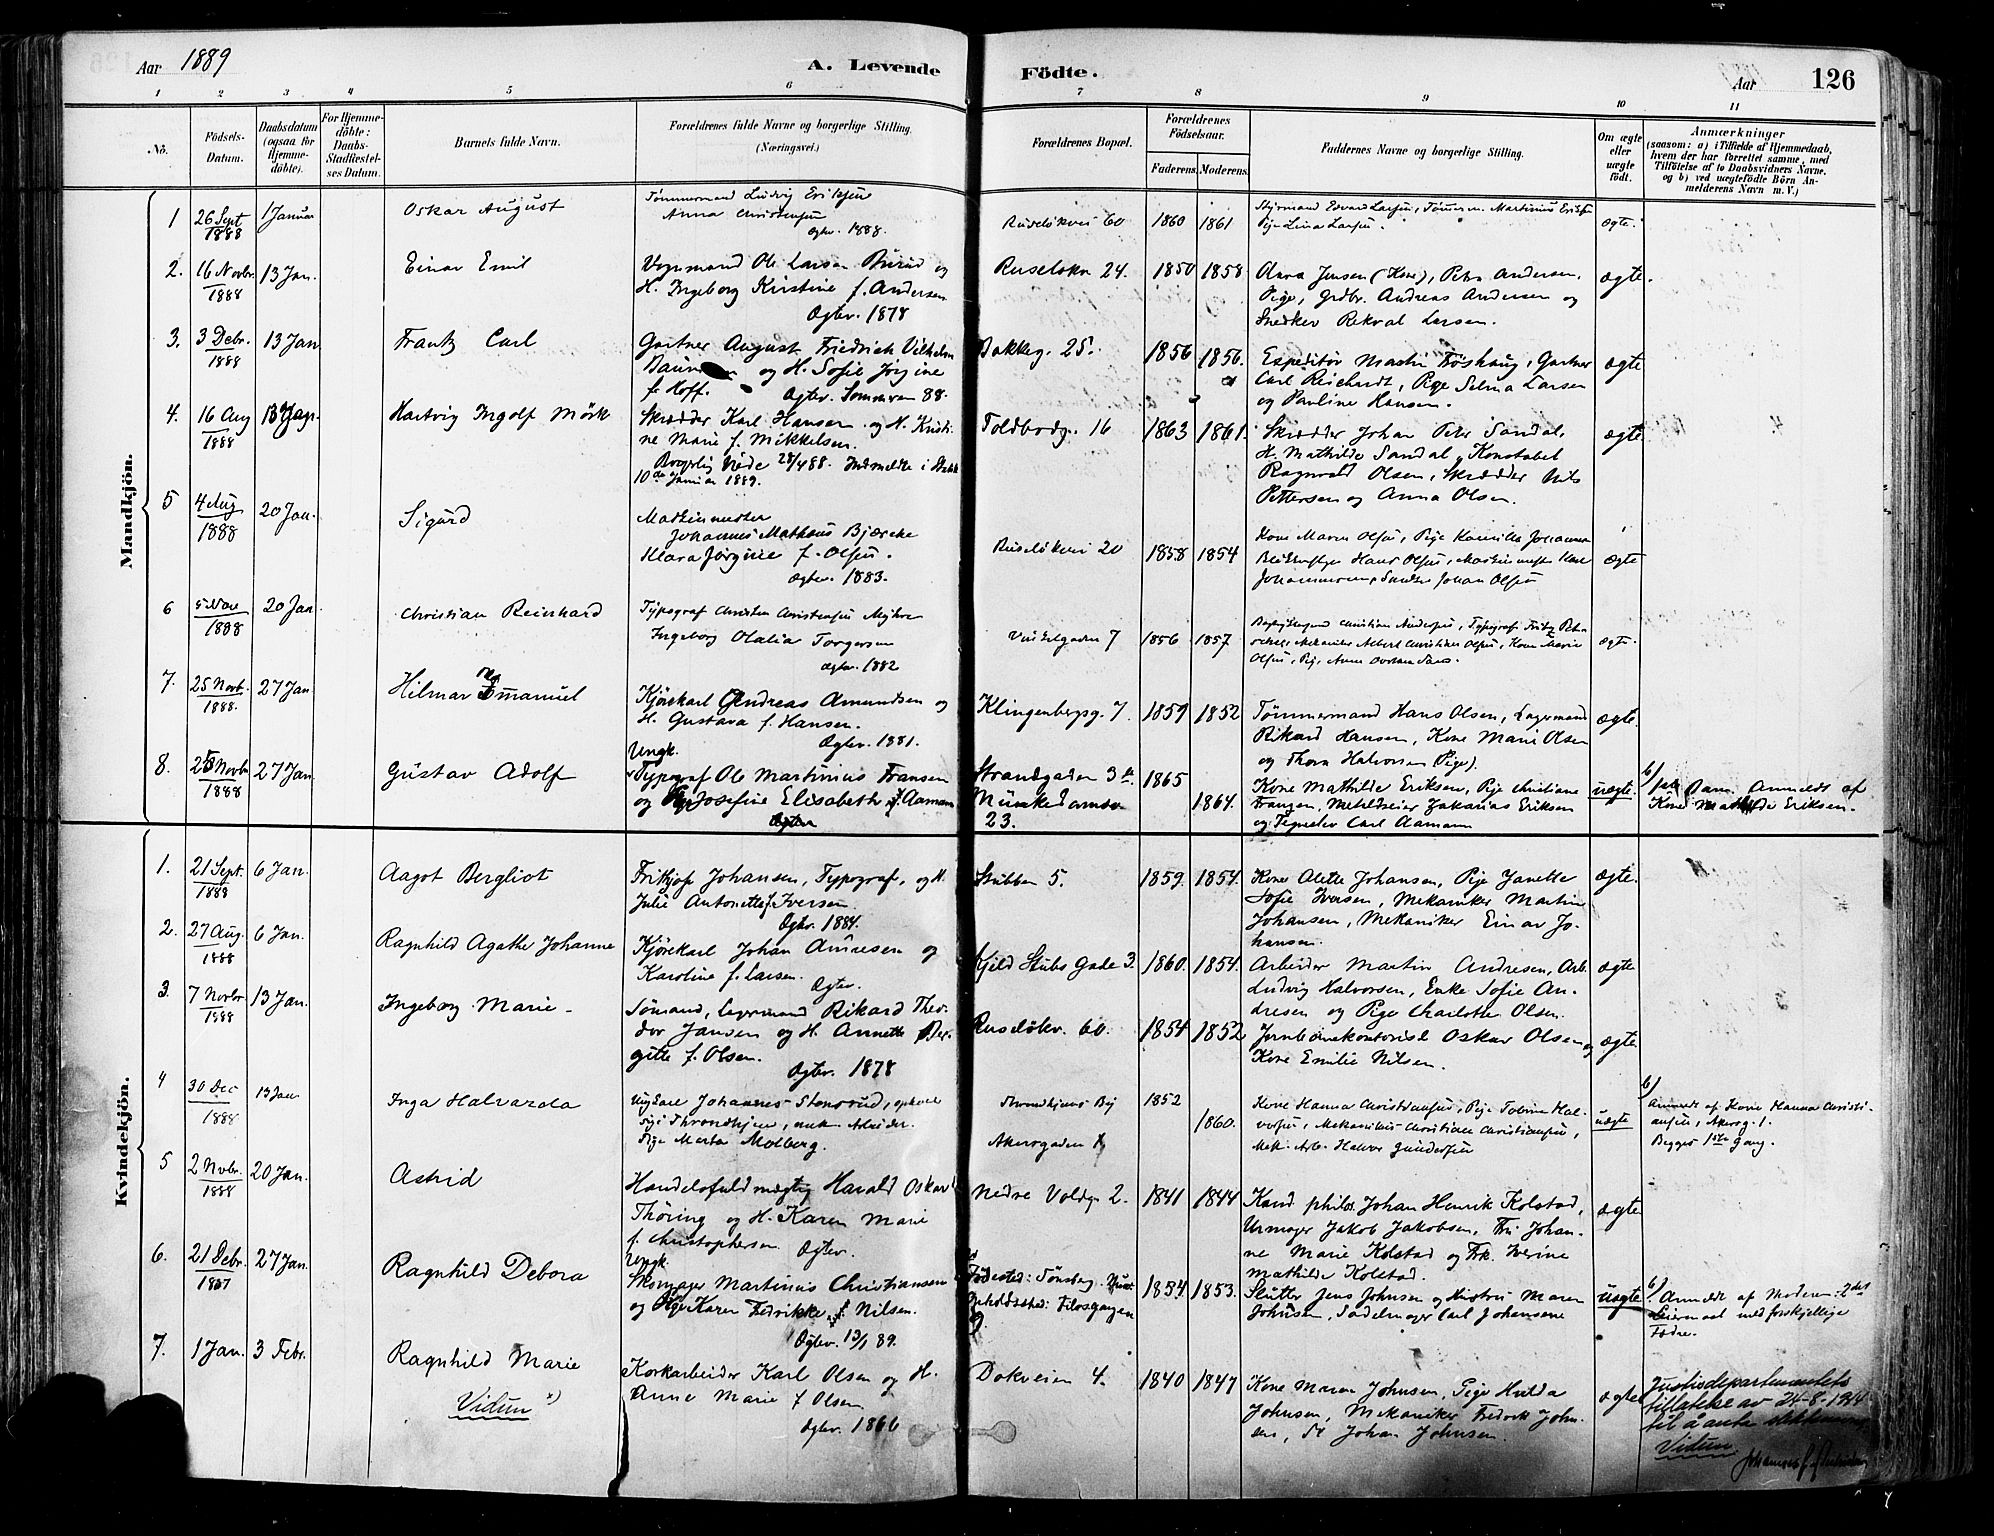 Aar 1889
A. Levende Födte.
Aar
126
1 2 3 4 5 6 7 8 9 10 11
No.
Födsels-Datum.
Daabsdatum (ogsaa for Hjemmedöbte).
For Hjemmedöbte: Daabs-Stadfæstelses Datum.
Barnets fulde Navn.
Forældrenes fulde Navne og borgerlige Stilling. (Næringsvei.)
Forældrenes Bopæl.
Forældrenes Födselsaar.
Faderens. Moderens.
Faddernes Navne og borgerlige Stilling.
Om ægte eller uægte födt.
Anmærkninger
(saasom: a) i Tilfælde af Hjemmedaab, hvem der har forrettet samme, med Tilföielse af to Daabsvidners Navne. og b) ved uægtefödte Börn Anmelderens Navn m. V.)
Mandkjön.
1 26 Sept 1888 1 Januar Oskar August
Tømmermand Ludvig Eriksen
Anna Christensen
Ægtev. 1888.
Ruseløkvei 60 1860 1861
Styrmand Edvard Larsen, Tømmerm. Martinius Eriksen
Pige Lina Larsen.
ægte
2. 16 Novbr. 1888 13 Jan. Einar Emil
Vognmand Ole Larsen Burud og
H. Ingeborg Kirstine f. Andersen
Ægtev. 1878
Ruseløkv 24. 1850 1858
Olava Jensen (Kone), Petra Andersen,
Pige, Grdbr. Andreas Andersen og
Snedker Rekval Larsen.
ægte.
3. 3 Debr. 1888 13 Jan Frantz Carl
Gartner August Friedrich Vilhelm
og H. Sofie Jorgine
f. Hoff. Ægtev. Sommeren 88.
Bakkeg. 25. 1856 1856.
Expeditør Martin Frøshaug, Gartner
Carl Reichardt, Pige Selma Larsen
og Pauline Hansen.
ægte
4. 16 Aug 1888 13 Jan. Hartvig Ingolf Mörk
Skrædder Karl Hansen og H. Kristine
Marie f. Mikkelsen.
Borgerlig Viede 28/4 88. Indmeldte i
10de Januar 1889.
Toldbodg. 16 1863 1861.
Skrædder Johan Peter Sandal,
H. Mathilde Sandal, Konstabel
Ragnvald Olsen, Skrædder Nils
Pettersen og Anna Olsen.
ægte
5 4 Aug 1888 20 Jan. Sigurd
Maskinmester
Johannes Mathæus Bjercke
Klara Jørgine f. Olsen.
Ægtev. 1883.
Ruseløkvei 20 1858 1854
Kone Maren Olsen, Pige Kamilla Johannesen
Hans Olsen, Maskinmester Karl
Johannesen, Snedker Johan Olsen
ægte
6 5 Nov 1888 20 Jan Christian Reinhard
Typograf Christen Christensen
Ingeborg Olalia Torgersen
Ægtev. 1882
Vinkelgaden 7 1856 1857
Christian Andersen, Typograf Fritz
Mekaniker Albert Christian Olsen, Kone Marie
Olsen, Pige Anne
ægte
7. 25 Novb. 1888. 27 Jan. Hilmar Emanuel
Kjørekarl Andreas Amundsen og
H. Gustava f. Hansen.
Ægtev. 1881.
Klingenbergg. 7. 1859 1852
Tømmermand Hans Olsen, Lagermand
Rikard Hansen, Kone Marie Olsen
og Thora Halvorsen (Pige).
ægte.
8. 25 Novbr 1888 27 Jan. Gustav Adolf
Ungk.
Typograf Ole Martinius Fransen
og Pige Josefine Elisabeth Aamann
Strandgaden 3
Munkedamsv. 23.
1865 1864.
Kone Mathilde Eriksen, Pige Christiane
Frangen, Metaldreier Zakarias Eriksen
og Tegnelev Carl Aamann
uægte.
b) 1ste Barn. Anmeldt af
Kone Mathilde Eriksen.
Kvindekjön.
1. 21 Sept. 1888 6 Jan. Aagot Bergliot
Frithjof Johansen, Typograf, og H.
Julie Antonette f. Iversen.
Ægtv. 1884.
Stubben 5. 1859. 1854.
Kone Alette Johansen, Pige Janette
Sofie Iversen, Mekaniker Martin
Johansen, Mekaniker Einar Johansen.
ægte.
2. 27 Aug. 1888 6 Jan. Ragnhild Agathe Johanne
Kjørekarl Johan Andresen og
Karoline f. Larsen.
Ægtev.
Kjeld Stubs Gade 3. 1860. 1854.
Arbeider Martin Andresen, Arb.
Ludvig Halvorsen, Enke Sofie Andresen
og Pige Charlotte Olsen.
ægte
3. 7 Novbr 1888 13 Jan. Ingeborg Marie
Sømand, Lagermand Rikard Theodor
Jansen og H. Annette Bergitte
f. Olsen.
Ægtev. 1878
Ruseløkv. 60. 1854 1852
Jernbanekontorist Oskar Olsen og
Kone Emilie Nilsen.
ægte.
4 30 Dec 1888 13 Jan Inga Halvarda
Ungkarl Johannes Stensrud,
i Throndhjem, Arbeider.
Pige Marta Molberg.
Throndhjems By
Akersgaden 1
1852 1860.
Kone Hanna Christiansen, Pige Tobine Halvorsen,
Mekanikus Christian Christiansen,
Mek. Arb. Halvor Gundersen
uægte
b) Anmeldt af Kone Hanna Christiansen,
Akersg. 1.
Begges 1ste Gang.
5 2 Novbr. 1888 20 Jan. Astrid
Handelsfuldmægtig Harald Oskar
Thøring og H. Karen Marie
f. Christophersen Ægtev.
Nedre Voldg. 2. 1841 1844
Kand philos. Johan Henrik Kolstad,
Urmager Jakob Jakobsen, Fru Johanne
Marie Kolstad og Frk. Iverine
Mathilde Kolstad.
ægte
6. 21 Debr. 1887 27 Jan. Ragnhild Debora
Ungk.
Skomager Martinius Christiansen
og Pige Karen Fredrikke Nilsen.
Ægtev. 13/1 89.
Fødested: Tønsberg.
Opholdssted: Filosofgangen 9
1854 1853.
Slutter Jens Johnsen og Hustru Maren
Johnsen, Sadelmager Carl Johansen
uægte.
b) Anmeldt af Moderen. 2det
Leiermaal med forskjellige
Fædre.
7. 1 Jan. 3 Febr. Ragnhild Marie
Vidun x)
Korkarbeider Karl Olsen og H.
Anne Marie f Olsen
Ægtev. 1866
Dokveien 4. 1840 1847
Kone Maren Johnsen, Pige Hulda
Johnsen, Mekaniker Fredrik Johnsen,
Johan Johnsen.
ægte
Justisdepartementets
tillatelse av 24-8-1944
til å anta slektsnavn
Vidun